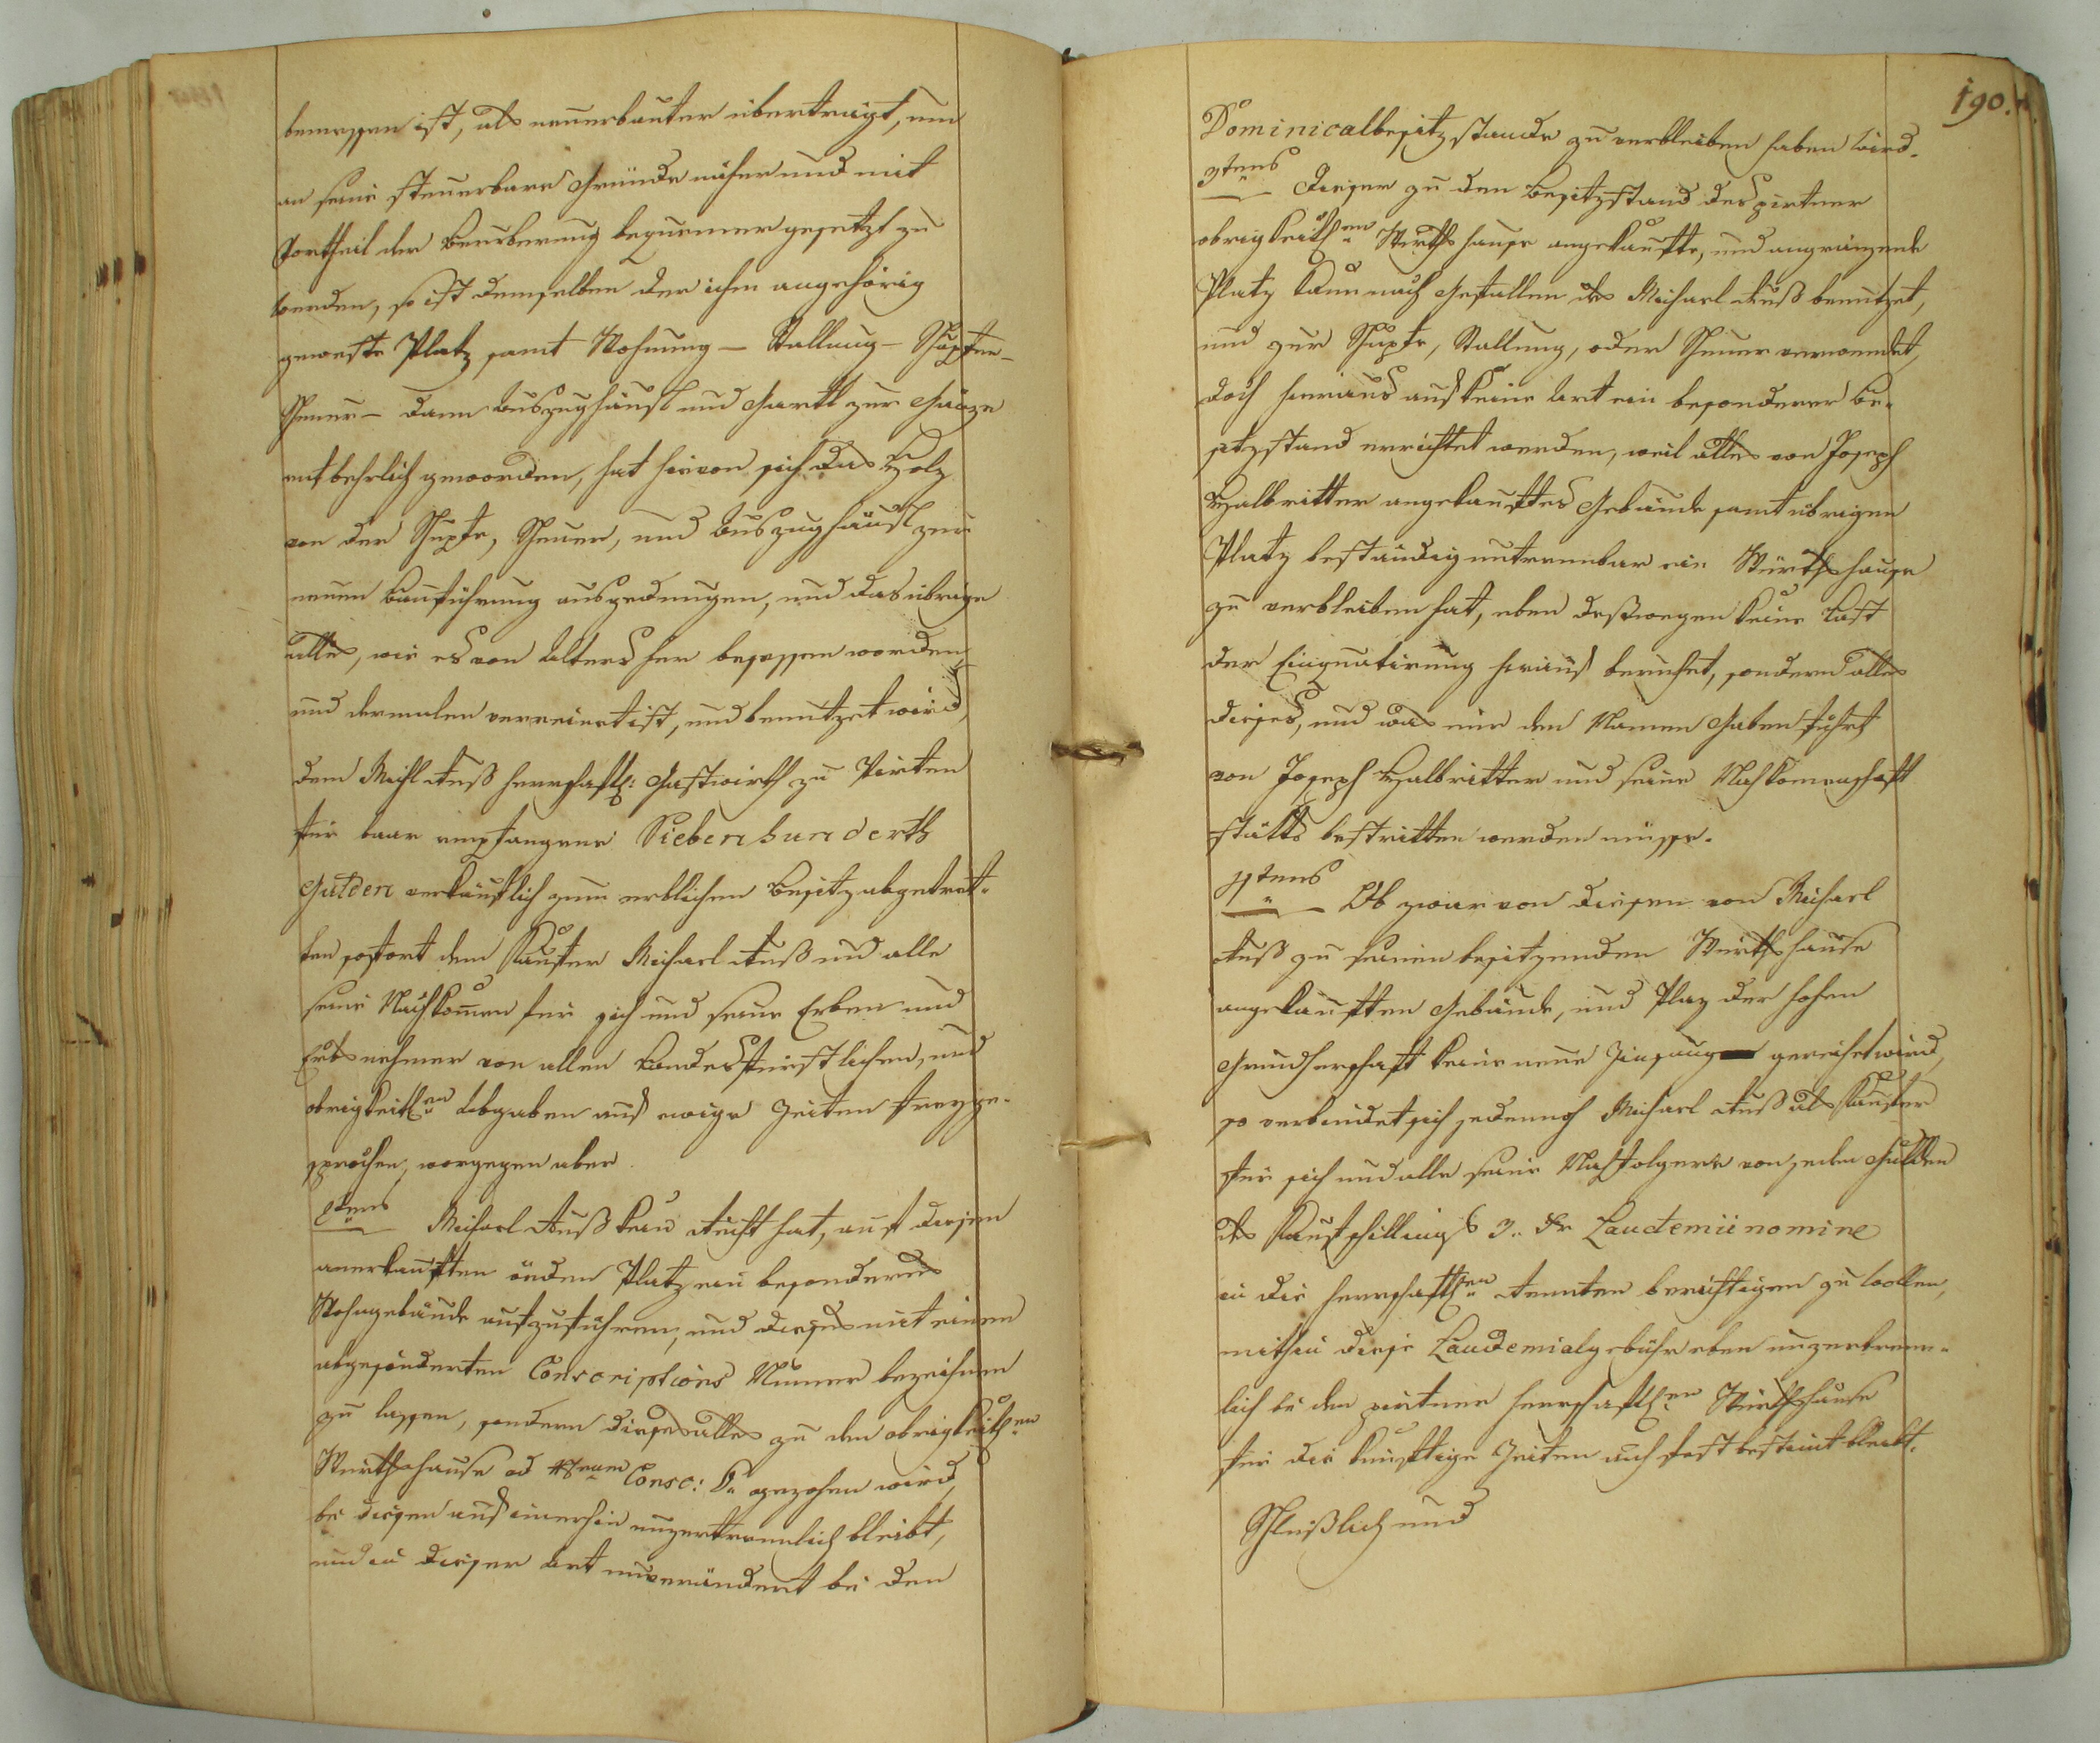 bemessen ist, als neuerbauter übertragt, um
an seine steuerbare Gründe näher und mit
Vortheil der Beurberung bequemer gesetzt zu
werden, so ist demselben der ihm angehörig
geweste Platz samt Wohnung – Stallung – Schupfen –
Scheuer – dann Auszughäusl und Gartl zur Gänze
entbehrlich geworden, hat hievon sich das Holz
von der Schupfe, Scheuer, und Auszughäusl zur
neuen Bauführung ausgedungen, und das übrige
alles, wie es von Alters her besessen worden,
und dermalen verreint ist, und benutzet wird,
dem Michl Fuß herrschaftl: Gastwirth zu Pirten
für baar empfangene Siebenhunderth
Gulden verkäuflich zum erblichen Besitz abgetret-
ten sofort dem Käufer Michael Fuß und alle
seine Nachkomen für sich und seine Erben und
Erbsnehmer von allen Landesfürstlichen, und
obrigkeitlen Abgaben auf ewige Zeiten freyge-
sprochen, wogegen aber
2tens Michael Fuß kein Recht hat, auf diesem
anerkauften öeden Platz ein besonderes
Wohngebäude aufzuführen, und dieses mit einem
abgesönderten Conscriptions Numer bezeichnen
zu lassen, sondern dieses alles zu dem obrigkeitlen
Wirthshause ad Consc: gezohen wird,
bei diesen auf imerhin unzertrennlich bleibt,
und in dieser Art unverändert bei den
190.
Dominicalbesitzstande zu verbleiben haben wird.
3tens Dieser zu den Besitzstand des pirtner
obrigkeitlen Wirthshause angekaufte, und angränzende
Platz kann nach Gefallen des Michael Fuß benützet,
und zur Schupfe, Stallung, oder Scheuer verwendet,
doch hieraus auf keine Art ein besonderer Be-
sitzstand errichtet werden, weil alles von Joseph
Halbritter angekauftes Gebäude samt übrigen
Platz beständig untrennbar ein Würthshause
zu verbleiben hat, eben deßwegen keine Last
der Einquatirung hierauf beruhet, sondern alles
dieses, und was nur den Namen Gaben führt
von Joseph Halbritter und seine Nachkomenschaft
stätts bestritten werden müsse.
4tens Ob zwar von diesen von Michael
Fuß zu seinen besitzenden Wirthshause
angekauften Gebäude, und Plaz der hohen
Grundherschaft keine neue Zinsung gereichet wird,
so verbindet sich jedennoch Michael Fuß als Käufer
für sich und alle seine Nachfolgere von jeden Gulden
des Kaufschillings 3. kr Laudemii nomine
in die herrschaftlen Renten berichtigen zu wollen,
mithin diese Laudemialgebühr eben unzertrenn-
lich bei dem pirtner herrschaftlen Wirthshause
für die künftige Zeiten auch fest bestimt bleibt.
Schlüßlich und